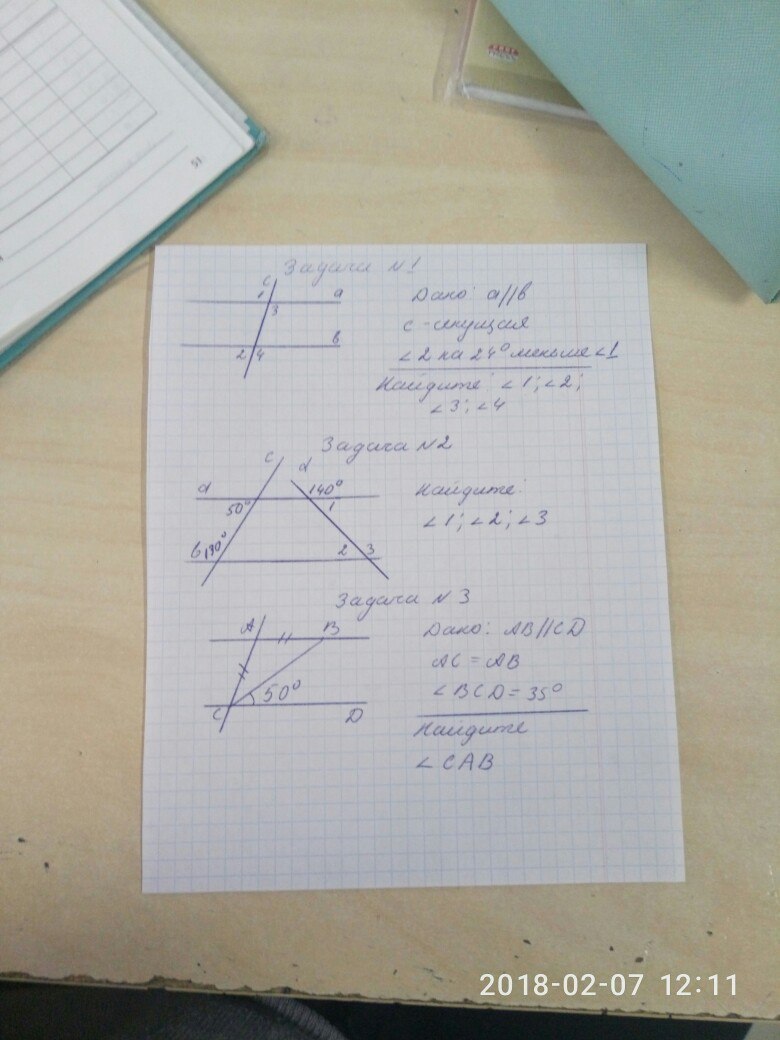 51
Задача №1
c
1
a
3
b
2
4
Дано: a//b
c - секущая
∠2 на 24° меньше ∠1
Найдите: ∠1; ∠2;
∠3; ∠4
Задача №2
c
d
a
140°
50°
1
b
130°
2
3
Найдите:
∠1; ∠2; ∠3
Задача №3
A
B
50°
C
D
Дано: AB//CD
AC = AB
∠BCD = 35°
Найдите
∠CAB
2018-02-07 12:11